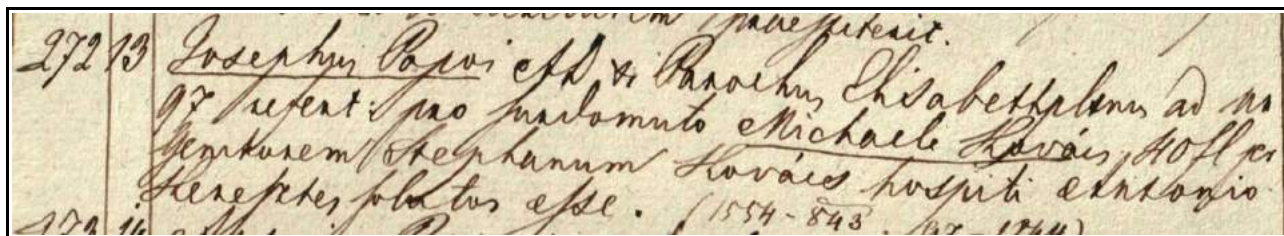 272 13 Josephus Papai AD & Parochus Elisabethplnus ad nr
97 refert: pro surdomuto Michaele Kovács, 40 fl per
Genitorem Stephanum Kovács hospiti Antonio
Keresztes solutos esse. (1554 - 843
273 14